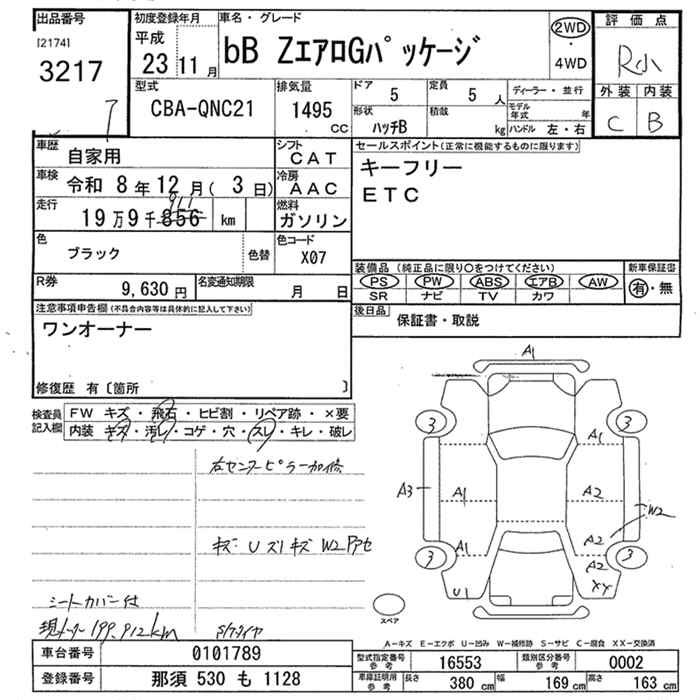 出品番号
[2174]
3217
7
初度登録年月
平成
23 11 月
車名・グレード
bB ZエアロGパッケージ
2WD
・
4WD
評価点
R小
外装 内装
C B
型式
CBA-QNC21
排気量
1495
cc
ドア 5
定員 5 人
ディーラー・並行
形状
ハッチB
積載
kg
モデル年式 年
ハンドル 左・右
車歴 自家用
シフト CAT
セールスポイント(正常に機能するものに限ります)
キーフリー
ETC
車検 令和 8年 12月( 3日)
冷房 AAC
走行 19万9千856 km
911
燃料 ガソリン
色 ブラック 色替
色コード X07
装備品 (純正品に限り○をつけてください)
新車保証書
PS PW ABS エアB AW
有・無
SR ナビ TV カワ
R券 9,630円
名変通知期限 月 日
後日品 保証書・取説
注意事項申告欄(不具合内容等は具体的に記入して下さい)
ワンオーナー
修復歴 有〔箇所 〕
検査員記入欄
FW キズ・飛石・ヒビ割・リペア跡・×要
内装 キズ・汚レ・コゲ・穴・スレ・キレ・破レ
右センターピラー加修
キズ・Uズレキズ W2アリ
シートカバー付
現メーター199,912km
S/Tタイヤ
A1
3 3
A1
A3 A1 A2
W2
A1 A2
3 A2 3
U1 XY
スペア
A-キズ E-エクボ U-凹み W-補修跡 S-サビ C-腐食 XX-交換済
車台番号 0101789
登録番号 那須 530 も 1128
型式指定番号参考 16553
類別区分番号参考 0002
車庫証明用参考 長さ 380 cm 幅 169 cm 高さ 163 cm